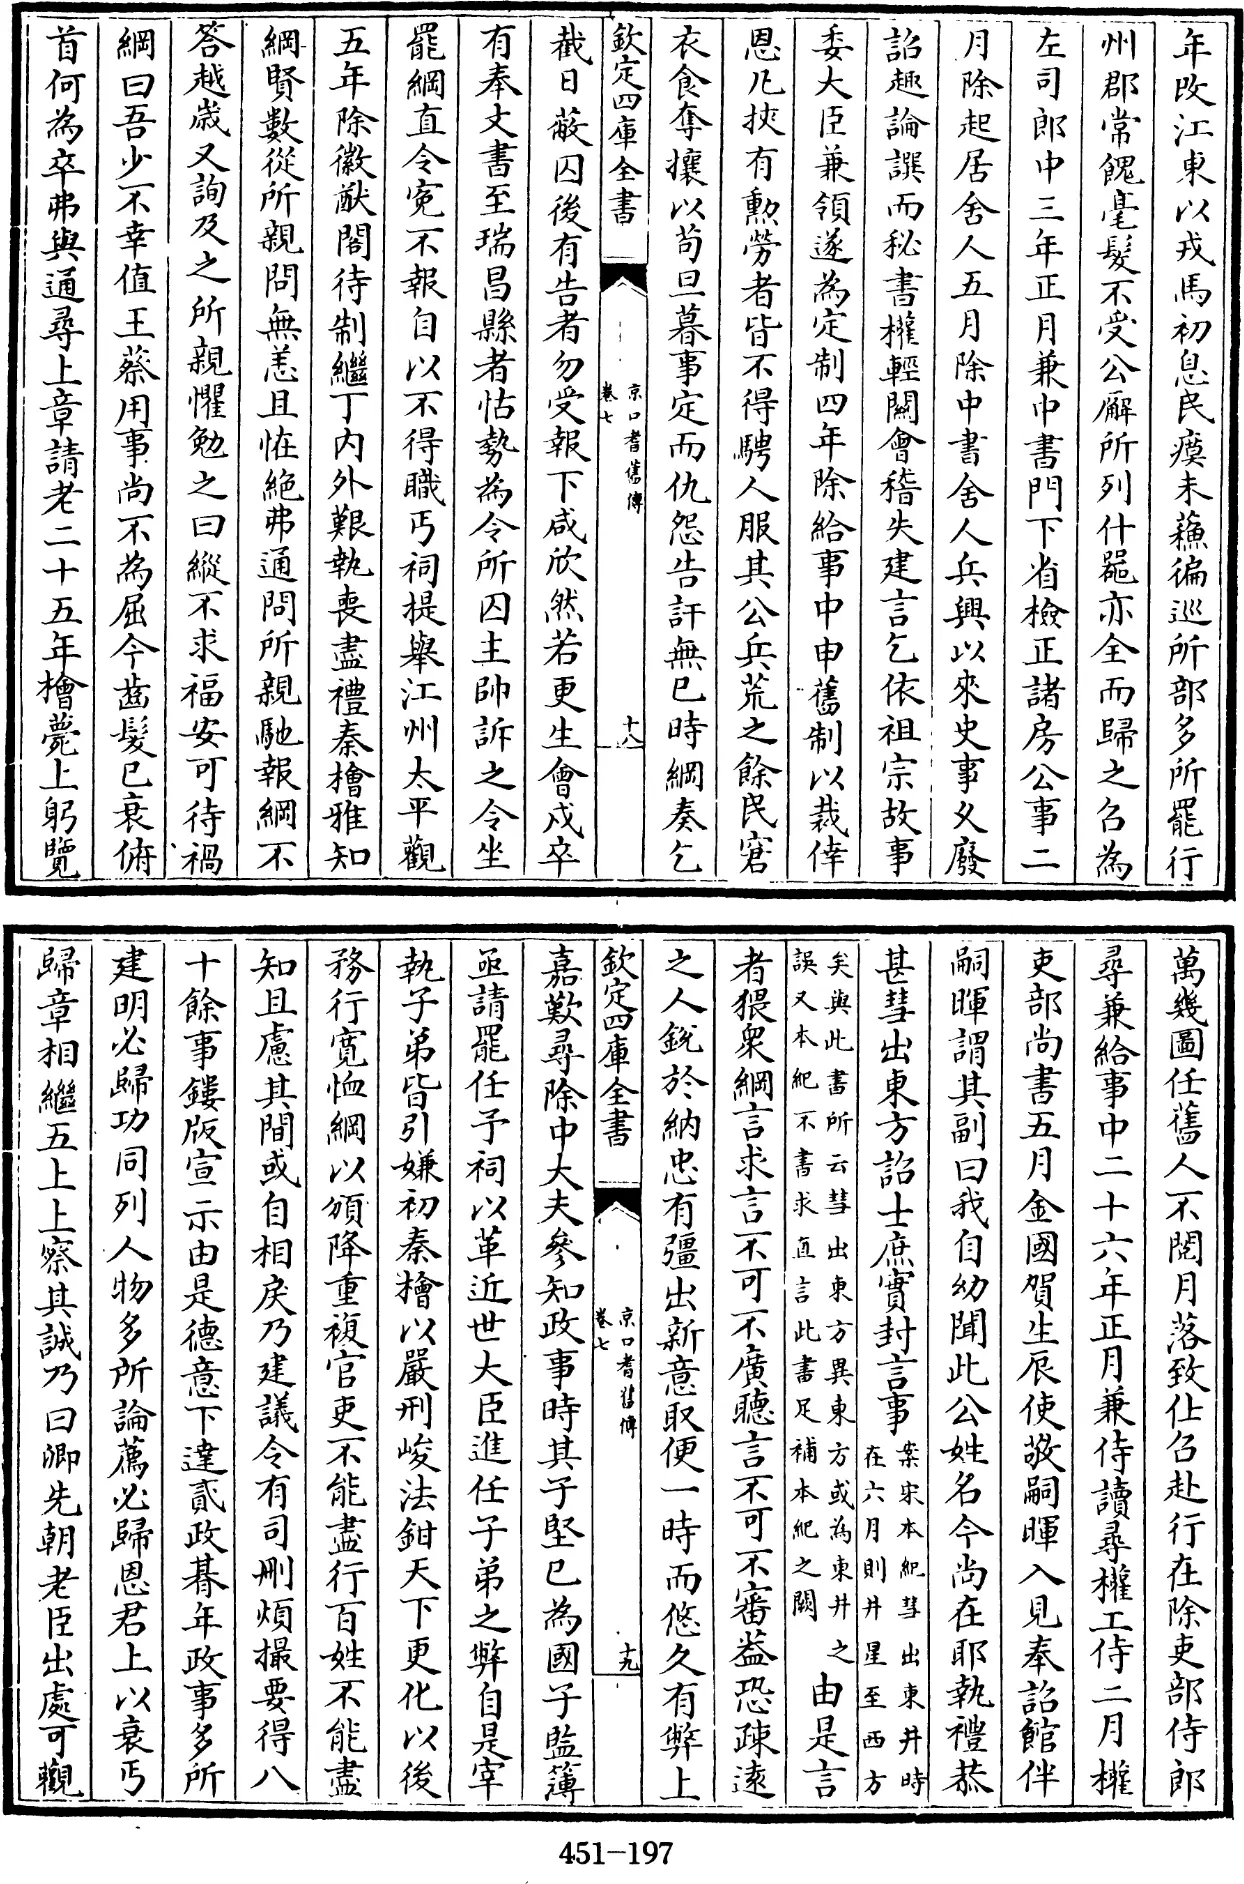 年改江東以戎馬初息民瘼未蘓徧巡所部多所罷行
州郡常餽毫髮不受公廨所列什器亦全而歸之召為
左司郎中三年正月兼中書門下省檢正諸房公事二
月除起居舍人五月除中書舍人兵興以來史事乆廢
詔趣論譔而秘書權輕闕會稽失建言乞依祖宗故事
委大臣兼領遂為定制四年除給事中申舊制以裁倖
恩凡挾有勳勞者皆不得騁人服其公兵荒之餘民窘
衣食奪攘以苟旦暮事定而仇怨告訐無已時綱奏乞
欽定四庫全書
京口耆舊傳
卷七
十八
截日蔽囚後有告者勿受報下咸欣然若更生會戍卒
有奉文書至瑞昌縣者怙勢為令所囚主帥訴之令坐
罷綱直令寃不報自以不得職丐祠提舉江州太平觀
五年除徽猷閣待制繼丁內外艱執喪盡禮秦檜雅知
綱賢數從所親問無恙且怪絶弗通問所親馳報綱不
答越歲又詢及之所親懼勉之曰縱不求福安可待禍
綱曰吾少不幸值王蔡用事尚不為屈今齒髮已衰俯
首何為卒弗與通尋上章請老二十五年檜薨上躬覽
萬幾圖任舊人不閱月落致仕召赴行在除吏部侍郎
尋兼給事中二十六年正月兼侍讀尋權工侍二月權
吏部尚書五月金國賀生辰使敬嗣暉入見奉詔館伴
嗣暉謂其副曰我自幼聞此公姓名今尚在耶執禮恭
甚彗出東方詔士庶實封言事案宋本紀彗出東井時
在六月則井星至西方
矣與此書所云彗出東方異東方或為東井之
誤又本紀不書求直言此書足補本紀之闕
由是言
者猥衆綱言求言不可不廣聽言不可不審葢恐疎遠
之人銳於納忠有彊出新意取便一時而悠久有弊上
欽定四庫全書
京口耆舊傳
卷七
十九
嘉歎尋除中大夫參知政事時其子堅已為國子監簿
亟請罷任予祠以革近世大臣進任子弟之弊自是宰
執子弟皆引嫌初秦檜以嚴刑峻法鉗天下更化以後
務行寛恤綱以頒降重複官吏不能盡行百姓不能盡
知且慮其間或自相戾乃建議令有司刪煩撮要得八
十餘事鏤版宣示由是德意下達貳政朞年政事多所
建明必歸功同列人物多所論薦必歸恩君上以衰丐
歸章相繼五上上察其誠乃曰卿先朝老臣出處可觀
451-197